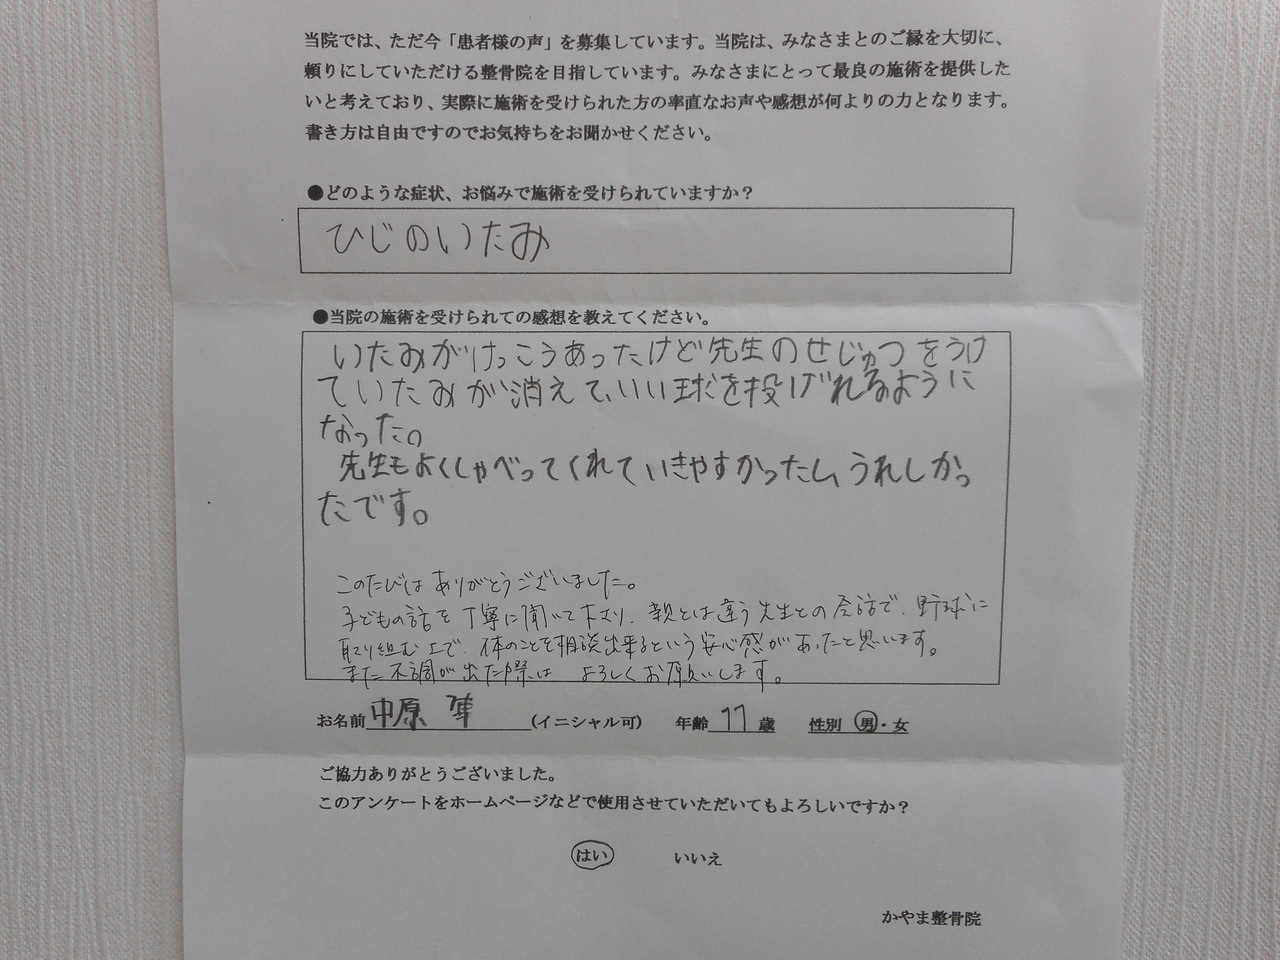 当院では、ただ今「患者様の声」を募集しています。当院は、みなさまとのご縁を大切に、
頼りにしていただける整骨院を目指しています。みなさまにとって最良の施術を提供した
いと考えており、実際に施術を受けられた方の率直なお声や感想が何よりの力となります。
書き方は自由ですのでお気持ちをお聞かせください。
●どのような症状、お悩みで施術を受けられていますか？
ひじのいたみ
●当院の施術を受けられての感想を教えてください。
いたみがけっこうあったけど先生のせじゅつをうけ
ていたみが消えて、いい球を投げれるように
なった。
先生もよくしゃべってくれていきやすかったし、うれしかっ
たです。
このたびはありがとうございました。
子どもの話を丁寧に聞いて下さり、親とは違う先生との会話で、野球に
取り組む上で、体のことを相談出来るという安心感があったと思います。
また不調が出た際は よろしくお願いします。
お名前 中原 (イニシャル可) 年齢 11 歳 性別 男・女
ご協力ありがとうございました。
このアンケートをホームページなどで使用させていただいてもよろしいですか？
はい いいえ
かやま整骨院